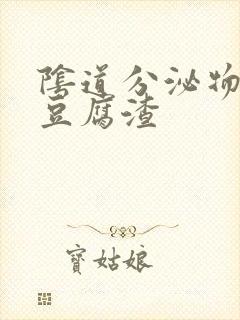 陰道分泌物
豆腐渣
寶姑娘